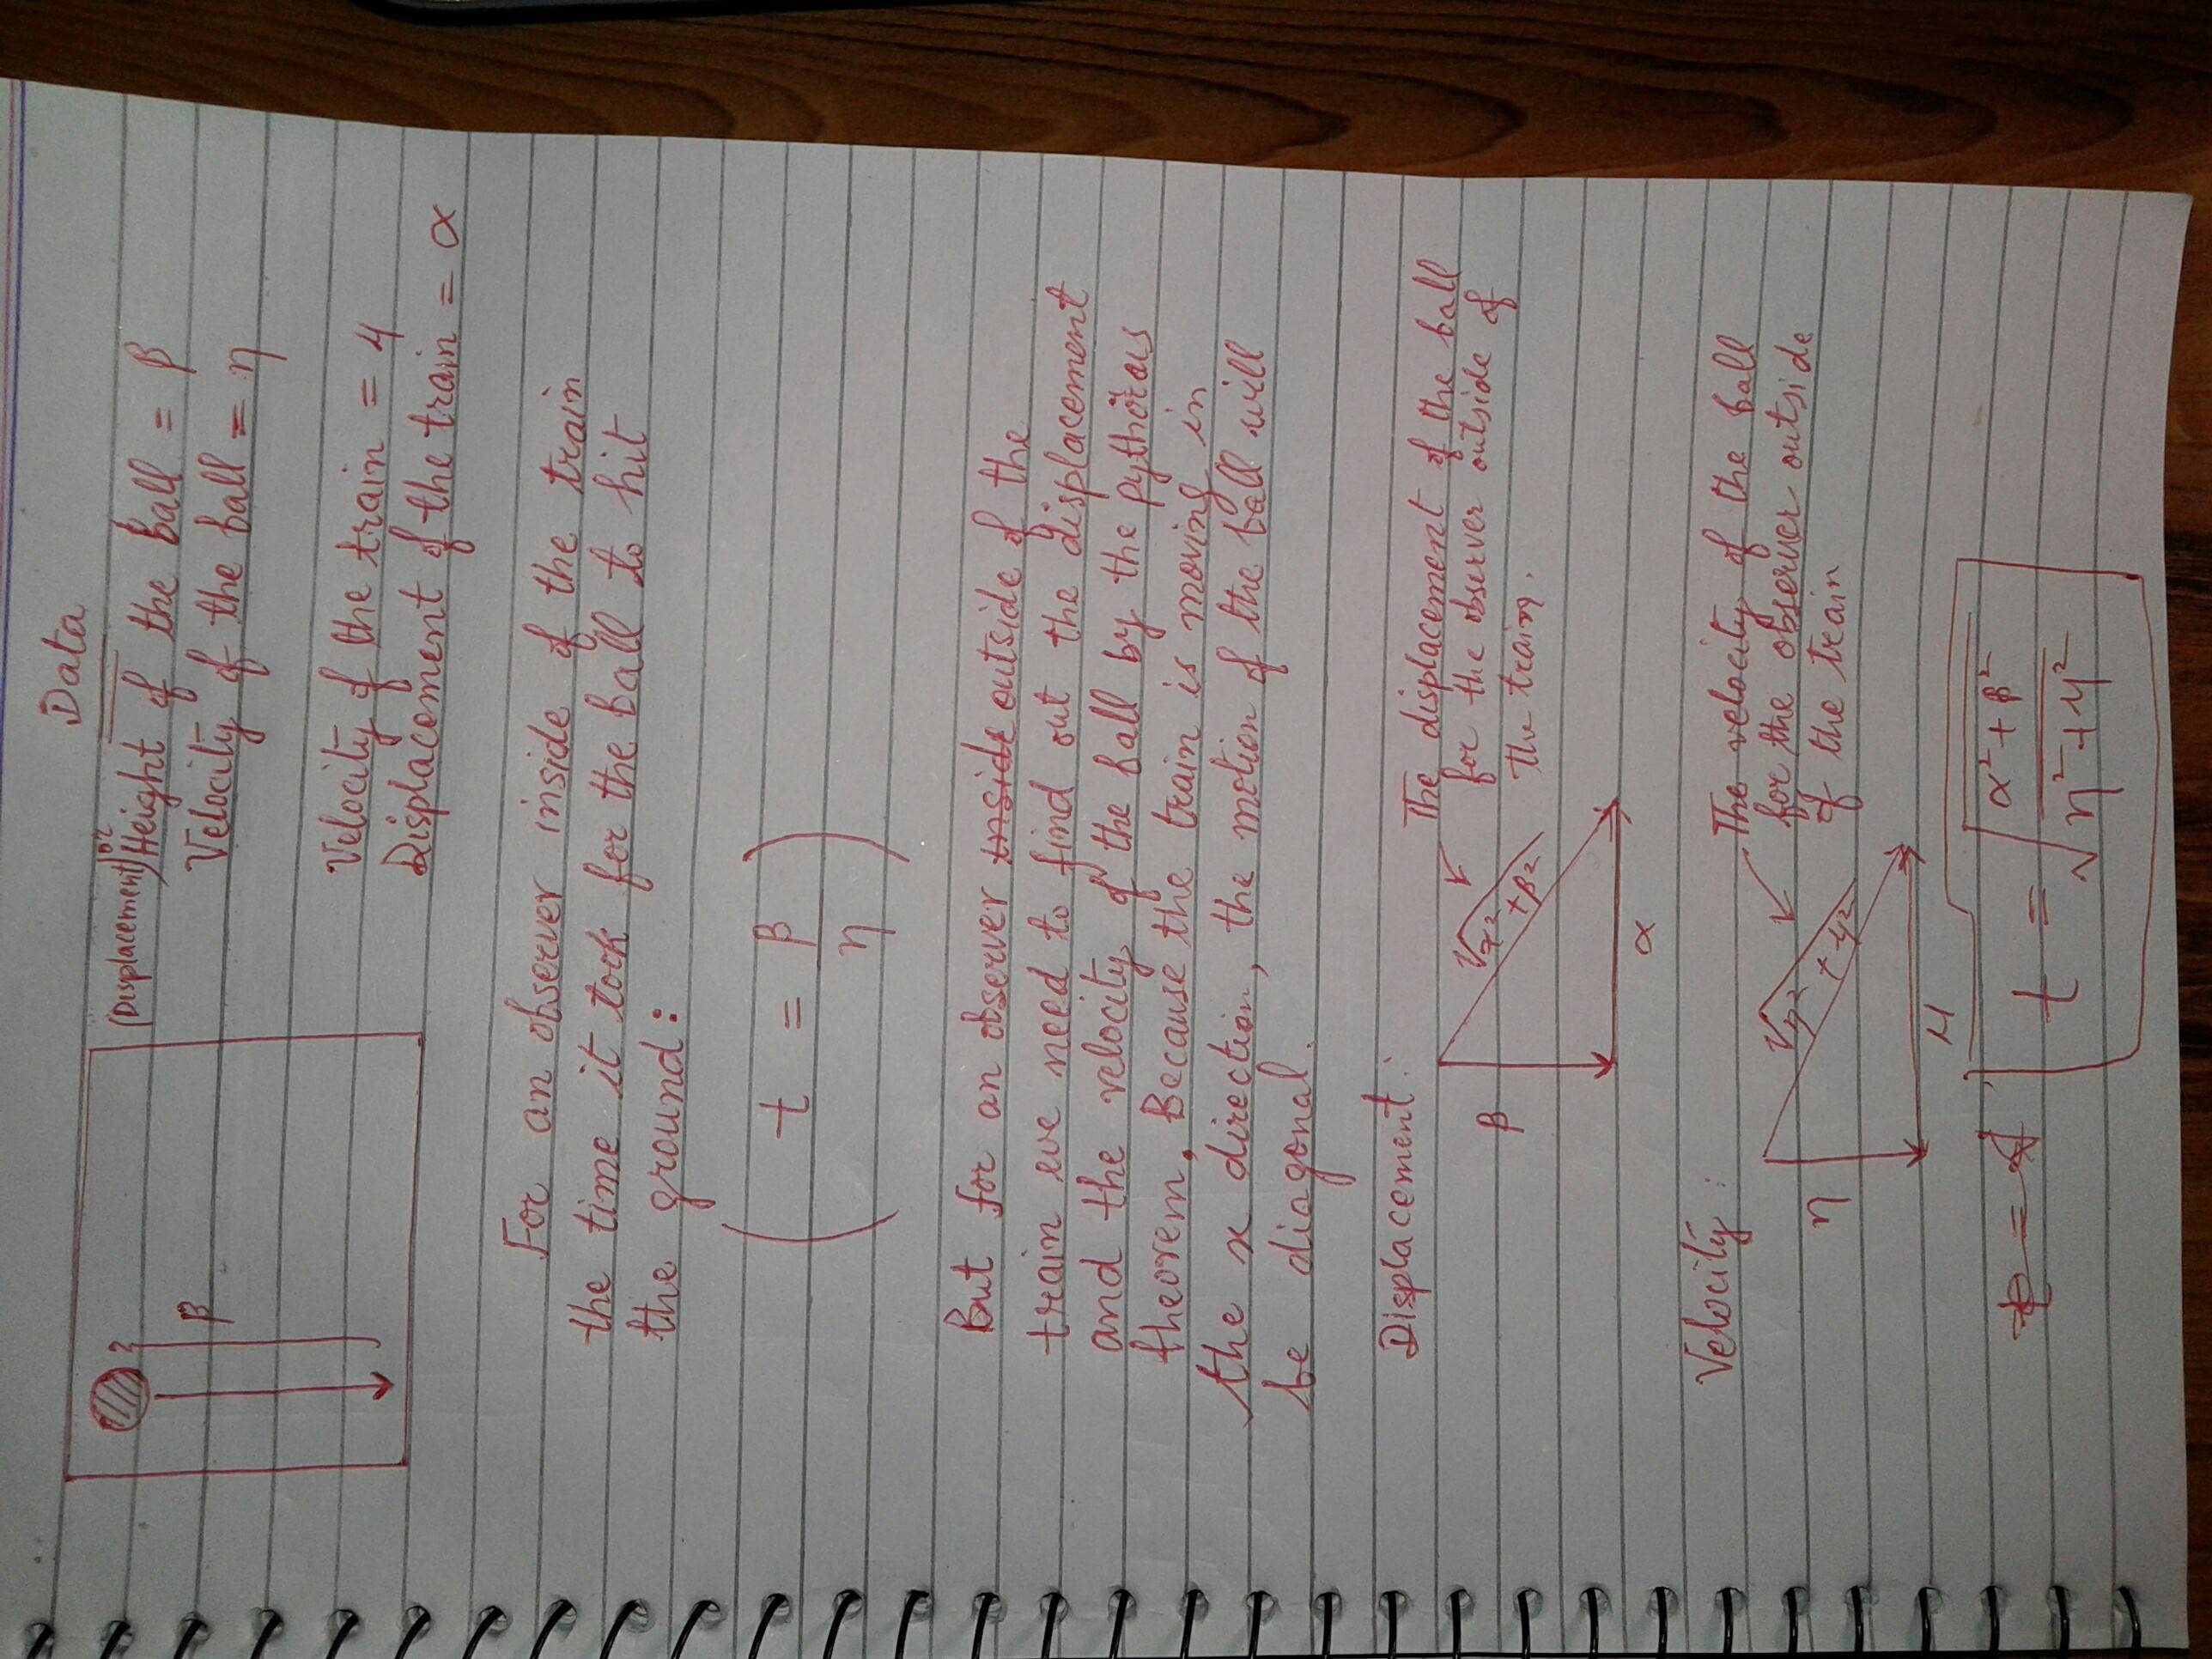 Data
(Displacement) or Height of the ball = β
Velocity of the ball = η
Velocity of the train = μ
Displacement of the train = α
β
For an observer inside of the train
the time it took for the ball to hit
the ground:
( t = β/η )
But for an observer inside outside of the
train we need to find out the displacement
and the velocity of the ball by the pythoras
theorem, Because the train is moving in
the x direction, the motion of the ball will
be diagonal.
Displacement:
The displacement of the ball
for the observer outside of
the train.
√α² + β²
β
α
Velocity:
The velocity of the ball
for the observer outside
of the train
√η² + μ²
η
μ
t = √α² + β² / √η² + μ²